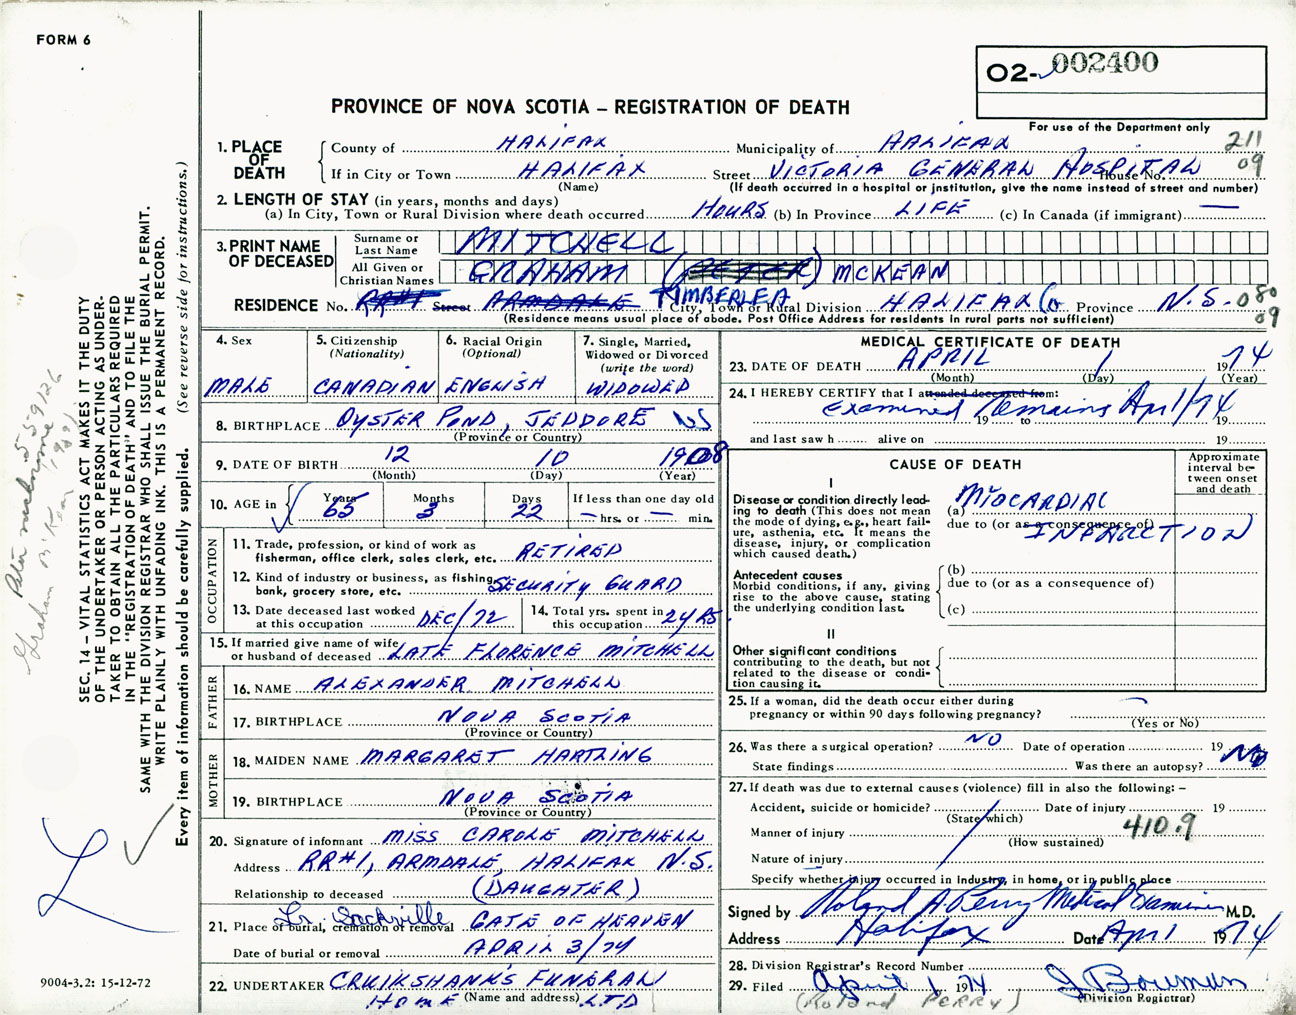 FORM 6
02- 002400
PROVINCE OF NOVA SCOTIA – REGISTRATION OF DEATH
For use of the Department only
211
09
1. PLACE OF DEATH
County of HALIFAX Municipality of HALIFAX
If in City or Town HALIFAX Street VICTORIA GENERAL HOSPITAL House No.
(Name) (If death occurred in a hospital or institution, give the name instead of street and number)
2. LENGTH OF STAY (in years, months and days)
(a) In City, Town or Rural Division where death occurred HOURS (b) In Province LIFE (c) In Canada (if immigrant) —
3. PRINT NAME OF DECEASED
Surname or Last Name MITCHELL
All Given or Christian Names GRAHAM (PETER) MCKEAN
RESIDENCE No. RR#1 Street ARMDALE TIMBERLEA City, Town or Rural Division HALIFAX Co Province N.S. 080
09
(Residence means usual place of abode. Post Office Address for residents in rural parts not sufficient)
4. Sex
MALE
5. Citizenship (Nationality)
CANADIAN
6. Racial Origin (Optional)
ENGLISH
7. Single, Married, Widowed or Divorced (write the word)
WIDOWED
8. BIRTHPLACE OYSTER POND, JEDDORE NS
(Province or Country)
9. DATE OF BIRTH 12 10 1908
(Month) (Day) (Year)
10. AGE in Years 65 Months 3 Days 22 If less than one day old — hrs. or — min.
OCCUPATION
11. Trade, profession, or kind of work as fisherman, office clerk, sales clerk, etc. RETIRED
12. Kind of industry or business, as fishing, bank, grocery store, etc. SECURITY GUARD
13. Date deceased last worked at this occupation DEC/72
14. Total yrs. spent in this occupation 24 RS.
15. If married give name of wife or husband of deceased LATE FLORENCE MITCHELL
FATHER
16. NAME ALEXANDER MITCHELL
17. BIRTHPLACE NOVA SCOTIA
(Province or Country)
MOTHER
18. MAIDEN NAME MARGARET HARTLING
19. BIRTHPLACE NOVA SCOTIA
(Province or Country)
20. Signature of informant MISS CAROLE MITCHELL
Address RR#1, ARMDALE, HALIFAX N.S.
Relationship to deceased (DAUGHTER)
21. Place of burial, cremation or removal Lr. Sackville GATE OF HEAVEN
Date of burial or removal APRIL 3/74
22. UNDERTAKER CRUIKSHANK'S FUNERAL
HOME (Name and address) LTD
MEDICAL CERTIFICATE OF DEATH
23. DATE OF DEATH APRIL 1 1974
(Month) (Day) (Year)
24. I HEREBY CERTIFY that I attended deceased from:
Examined Remains Apr 1/74
19 to 19
and last saw h alive on 19
CAUSE OF DEATH
Approximate interval between onset and death
I
Disease or condition directly leading to death (This does not mean the mode of dying, e.g., heart failure, asthenia, etc. It means the disease, injury, or complication which caused death.)
(a) MYOCARDIAL
due to (or as a consequence of)
INFARCTION
Antecedent causes
Morbid conditions, if any, giving rise to the above cause, stating the underlying condition last.
(b)
due to (or as a consequence of)
(c)
II
Other significant conditions contributing to the death, but not related to the disease or condition causing it.
25. If a woman, did the death occur either during pregnancy or within 90 days following pregnancy? —
(Yes or No)
26. Was there a surgical operation? NO Date of operation 19
State findings Was there an autopsy? No
27. If death was due to external causes (violence) fill in also the following: –
Accident, suicide or homicide? Date of injury 19
(State which)
Manner of injury 410.9
(How sustained)
Nature of injury
Specify whether injury occurred in Industry, in home, or in public place
Signed by Roland A Perry Medical Examiner M.D.
Address Halifax Date April 1974
28. Division Registrar's Record Number
29. Filed April 1 1974 J Bowman
(Roland PERRY) (Division Registrar)
SEC. 14 – VITAL STATISTICS ACT MAKES IT THE DUTY
OF THE UNDERTAKER OR PERSON ACTING AS UNDERTAKER
TO OBTAIN ALL THE PARTICULARS REQUIRED
IN THE "REGISTRATION OF DEATH" AND TO FILE THE
SAME WITH THE DIVISION REGISTRAR WHO SHALL ISSUE THE BURIAL PERMIT.
WRITE PLAINLY WITH UNFADING INK. THIS IS A PERMANENT RECORD.
Every item of information should be carefully supplied. (See reverse side for instructions.)
Graham McKean
9004-3.2: 15-12-72